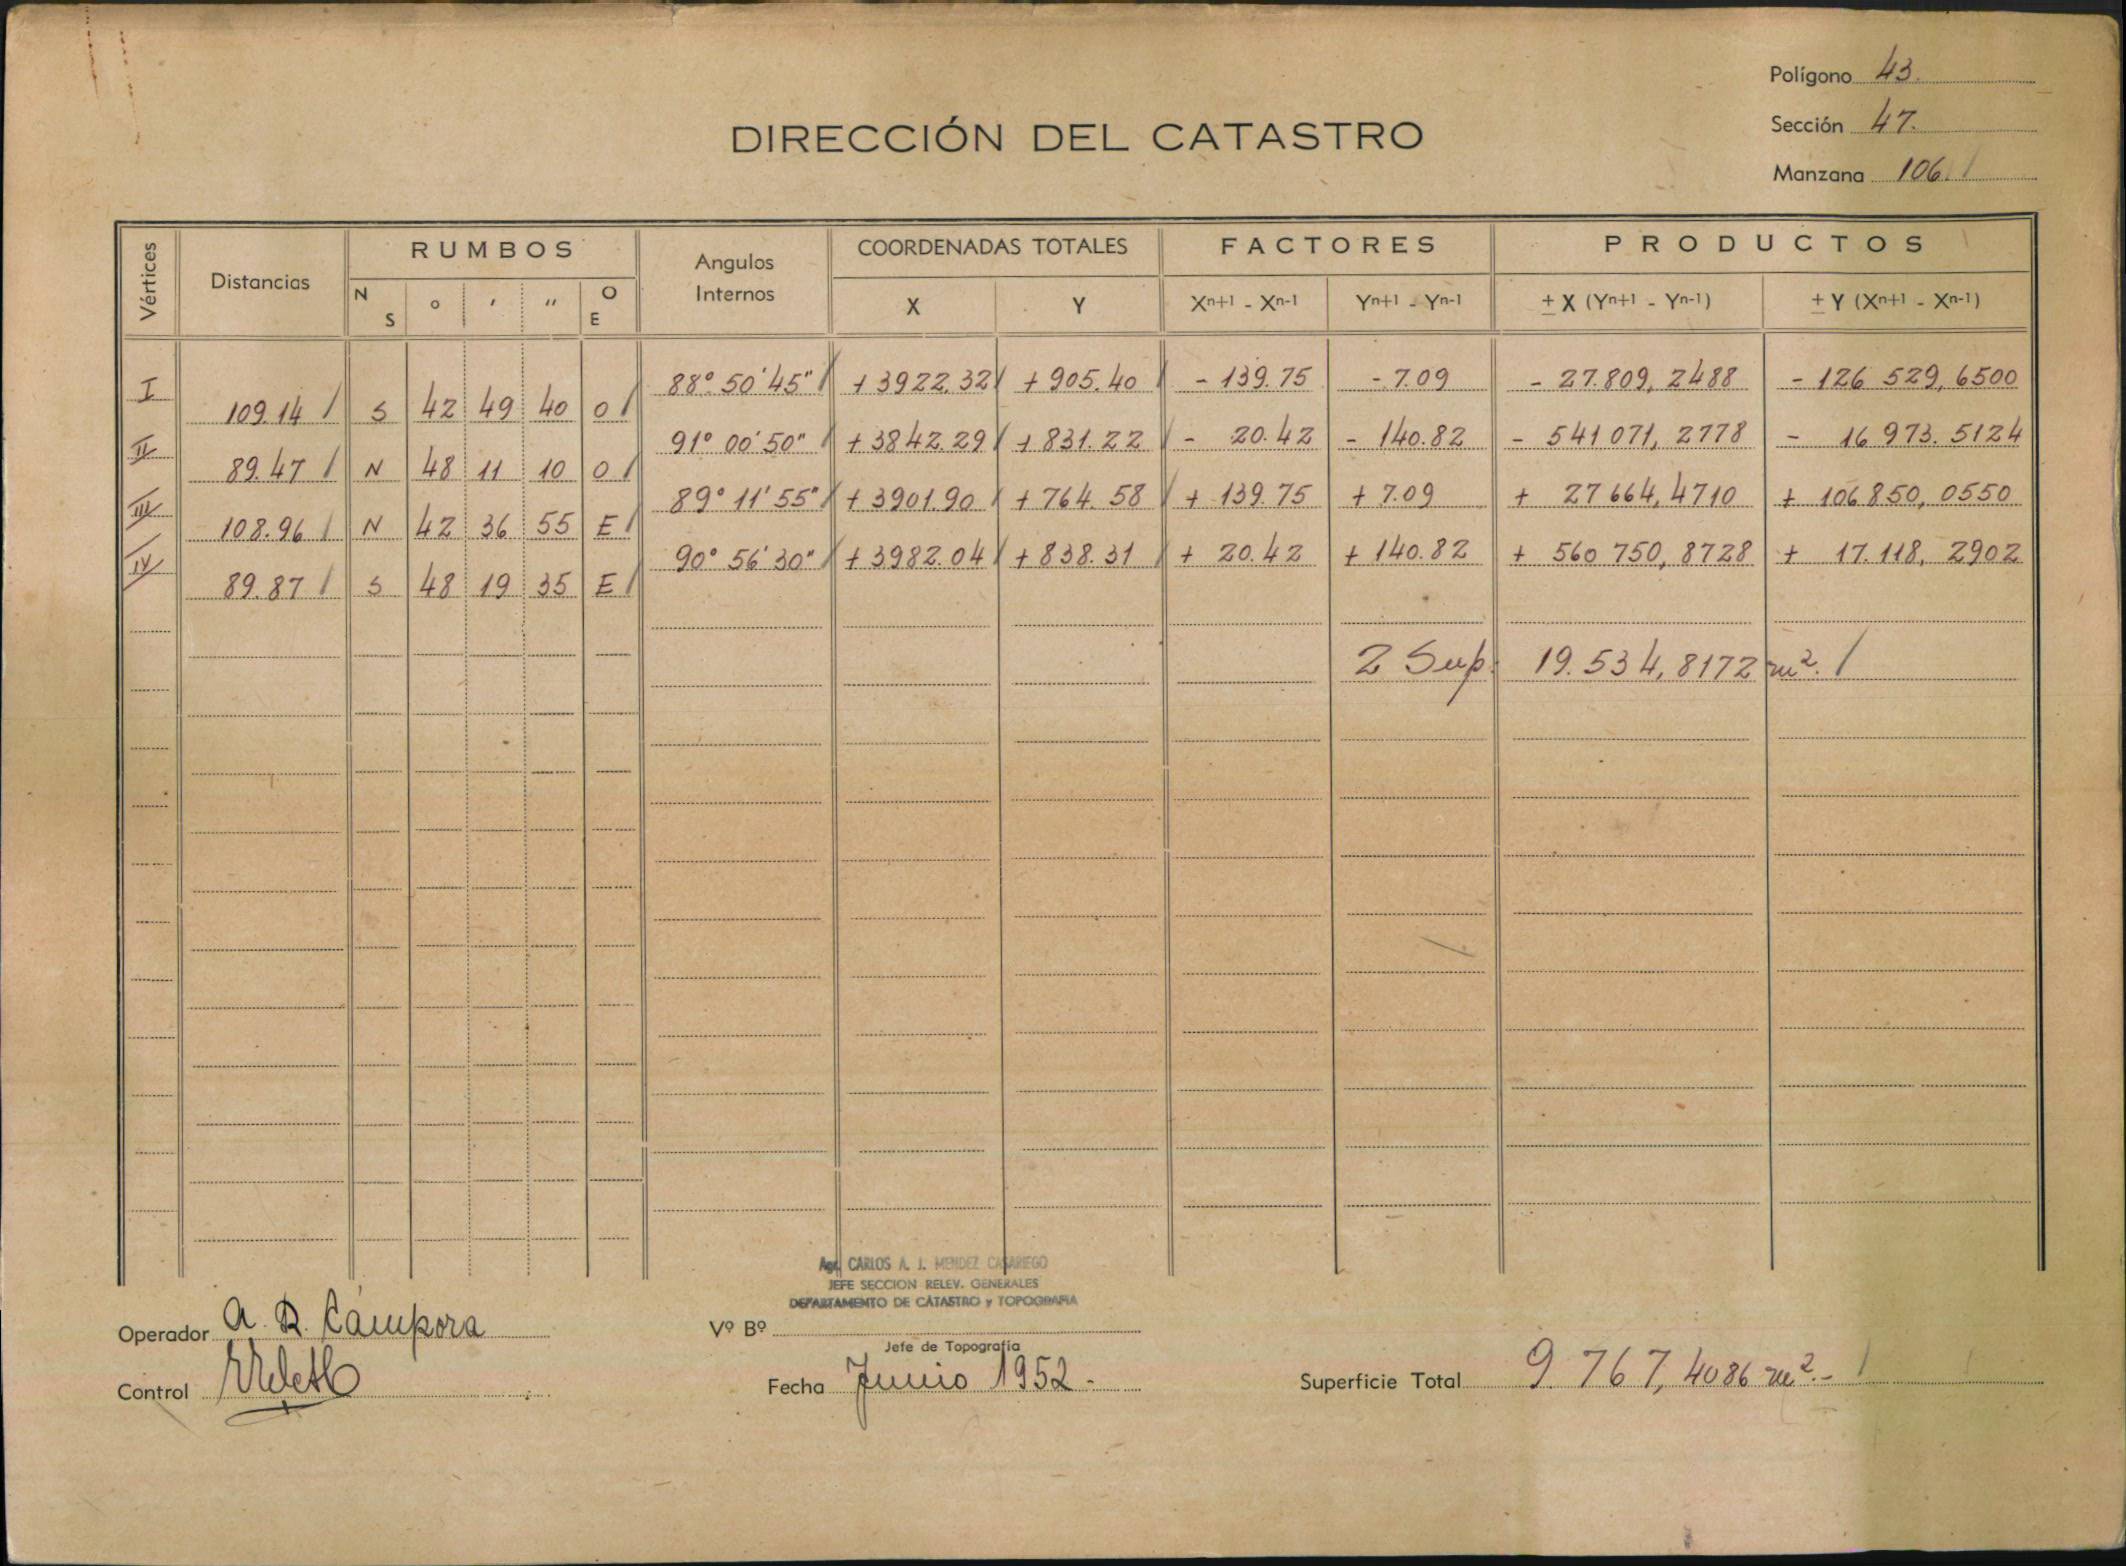 Polígono 43.
Sección 47.
Manzana 106.
DIRECCIÓN DEL CATASTRO
Vértices
Distancias
RUMBOS
N S ° ' " O E
Angulos
Internos
COORDENADAS TOTALES
X Y
FACTORES
Xn+1 - Xn-1 Yn+1 - Yn-1
PRODUCTOS
± X (Yn+1 - Yn-1) ± Y (Xn+1 - Xn-1)
I 88° 50' 45" + 3922.32 + 905.40 - 139.75 - 7.09 - 27.809,2488 - 126 529,6500
109.14 S 42 49 40 O
II 91° 00' 50" + 3842.29 + 831.22 - 20.42 - 140.82 - 541 071,2778 - 16 973.5124
89.47 N 48 11 10 O
III 89° 11' 55" + 3901.90 + 764.58 + 139.75 + 7.09 + 27 664,4710 + 106.850,0550
108.96 N 42 36 55 E
IV 90° 56' 30" + 3982.04 + 838.31 + 20.42 + 140.82 + 560 750,8728 + 17.118,2902
89.87 S 48 19 35 E
2 Sup. 19.534,8172 m².
Agr. CARLOS A. J. MENDEZ CASARIEGO
JEFE SECCION RELEV. GENERALES
DEPARTAMENTO DE CATASTRO y TOPOGRAFIA
Operador A. R. Cámpora
Vº Bº
Jefe de Topografía
Control
Fecha Junio 1952.-
Superficie Total 9.767,4086 m².-